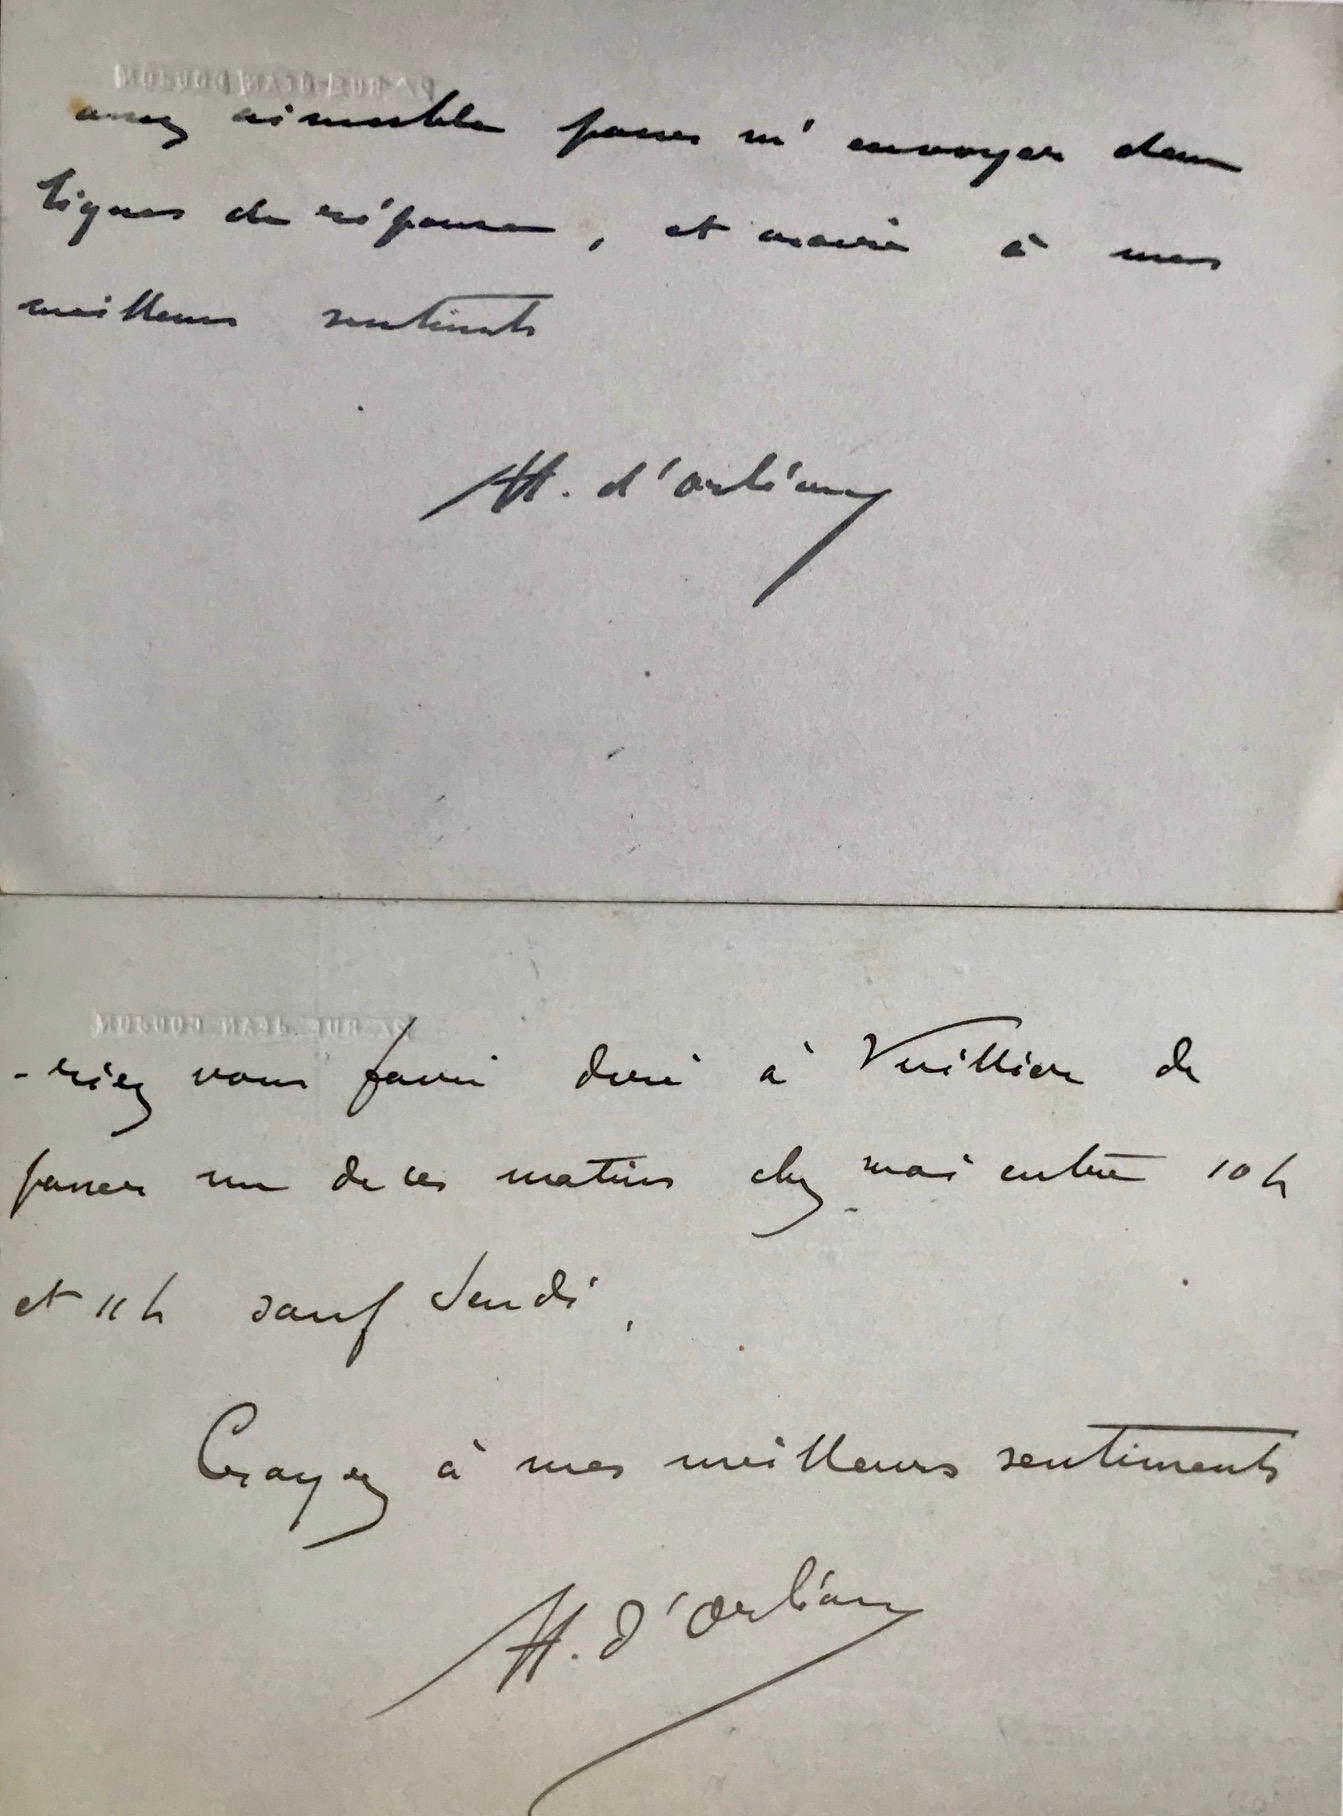 assez aimable pour m'envoyer deux
lignes de réponse, et croire à mes
meilleurs sentiments
H. d'Orléans
27 RUE JEAN GOUJON
-riez vous faire dire à Vuillier de
passer un de ces matins chez moi entre 10h
et 11h sauf Jeudi,
Croyez à mes meilleurs sentiments
H. d'Orléans